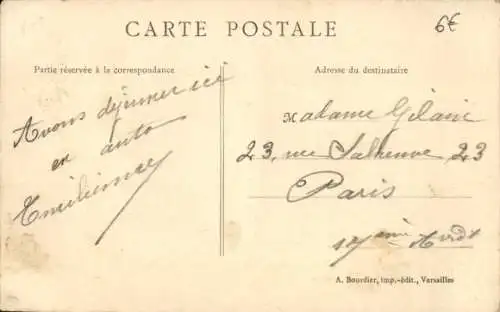 CARTE POSTALE
6€
Partie réservée à la correspondance
Adresse du destinataire
Avons déjeuner ici
en auto
Madame Gilain
23, rue Salneuve 23
Paris
17ème Ardt
A. Bourdier, imp.-édit., Versailles